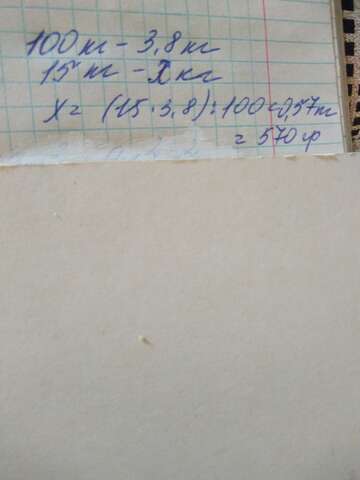 100 кг - 3,8 кг
15 кг - X кг
X = (15 · 3,8) : 100 = 0,57 кг
= 570 гр